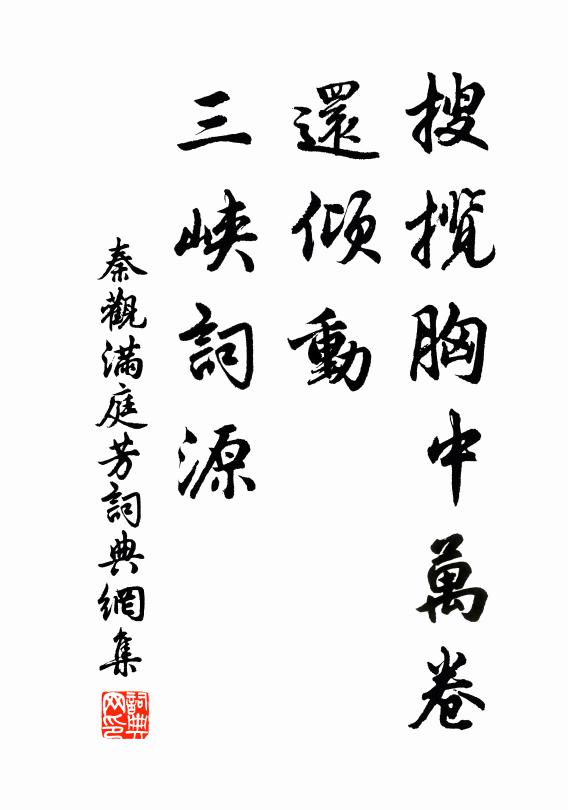 搜攬胸中萬卷
還傾動
三峽詞源
秦觀滿庭芳詞典網集
詞典網印